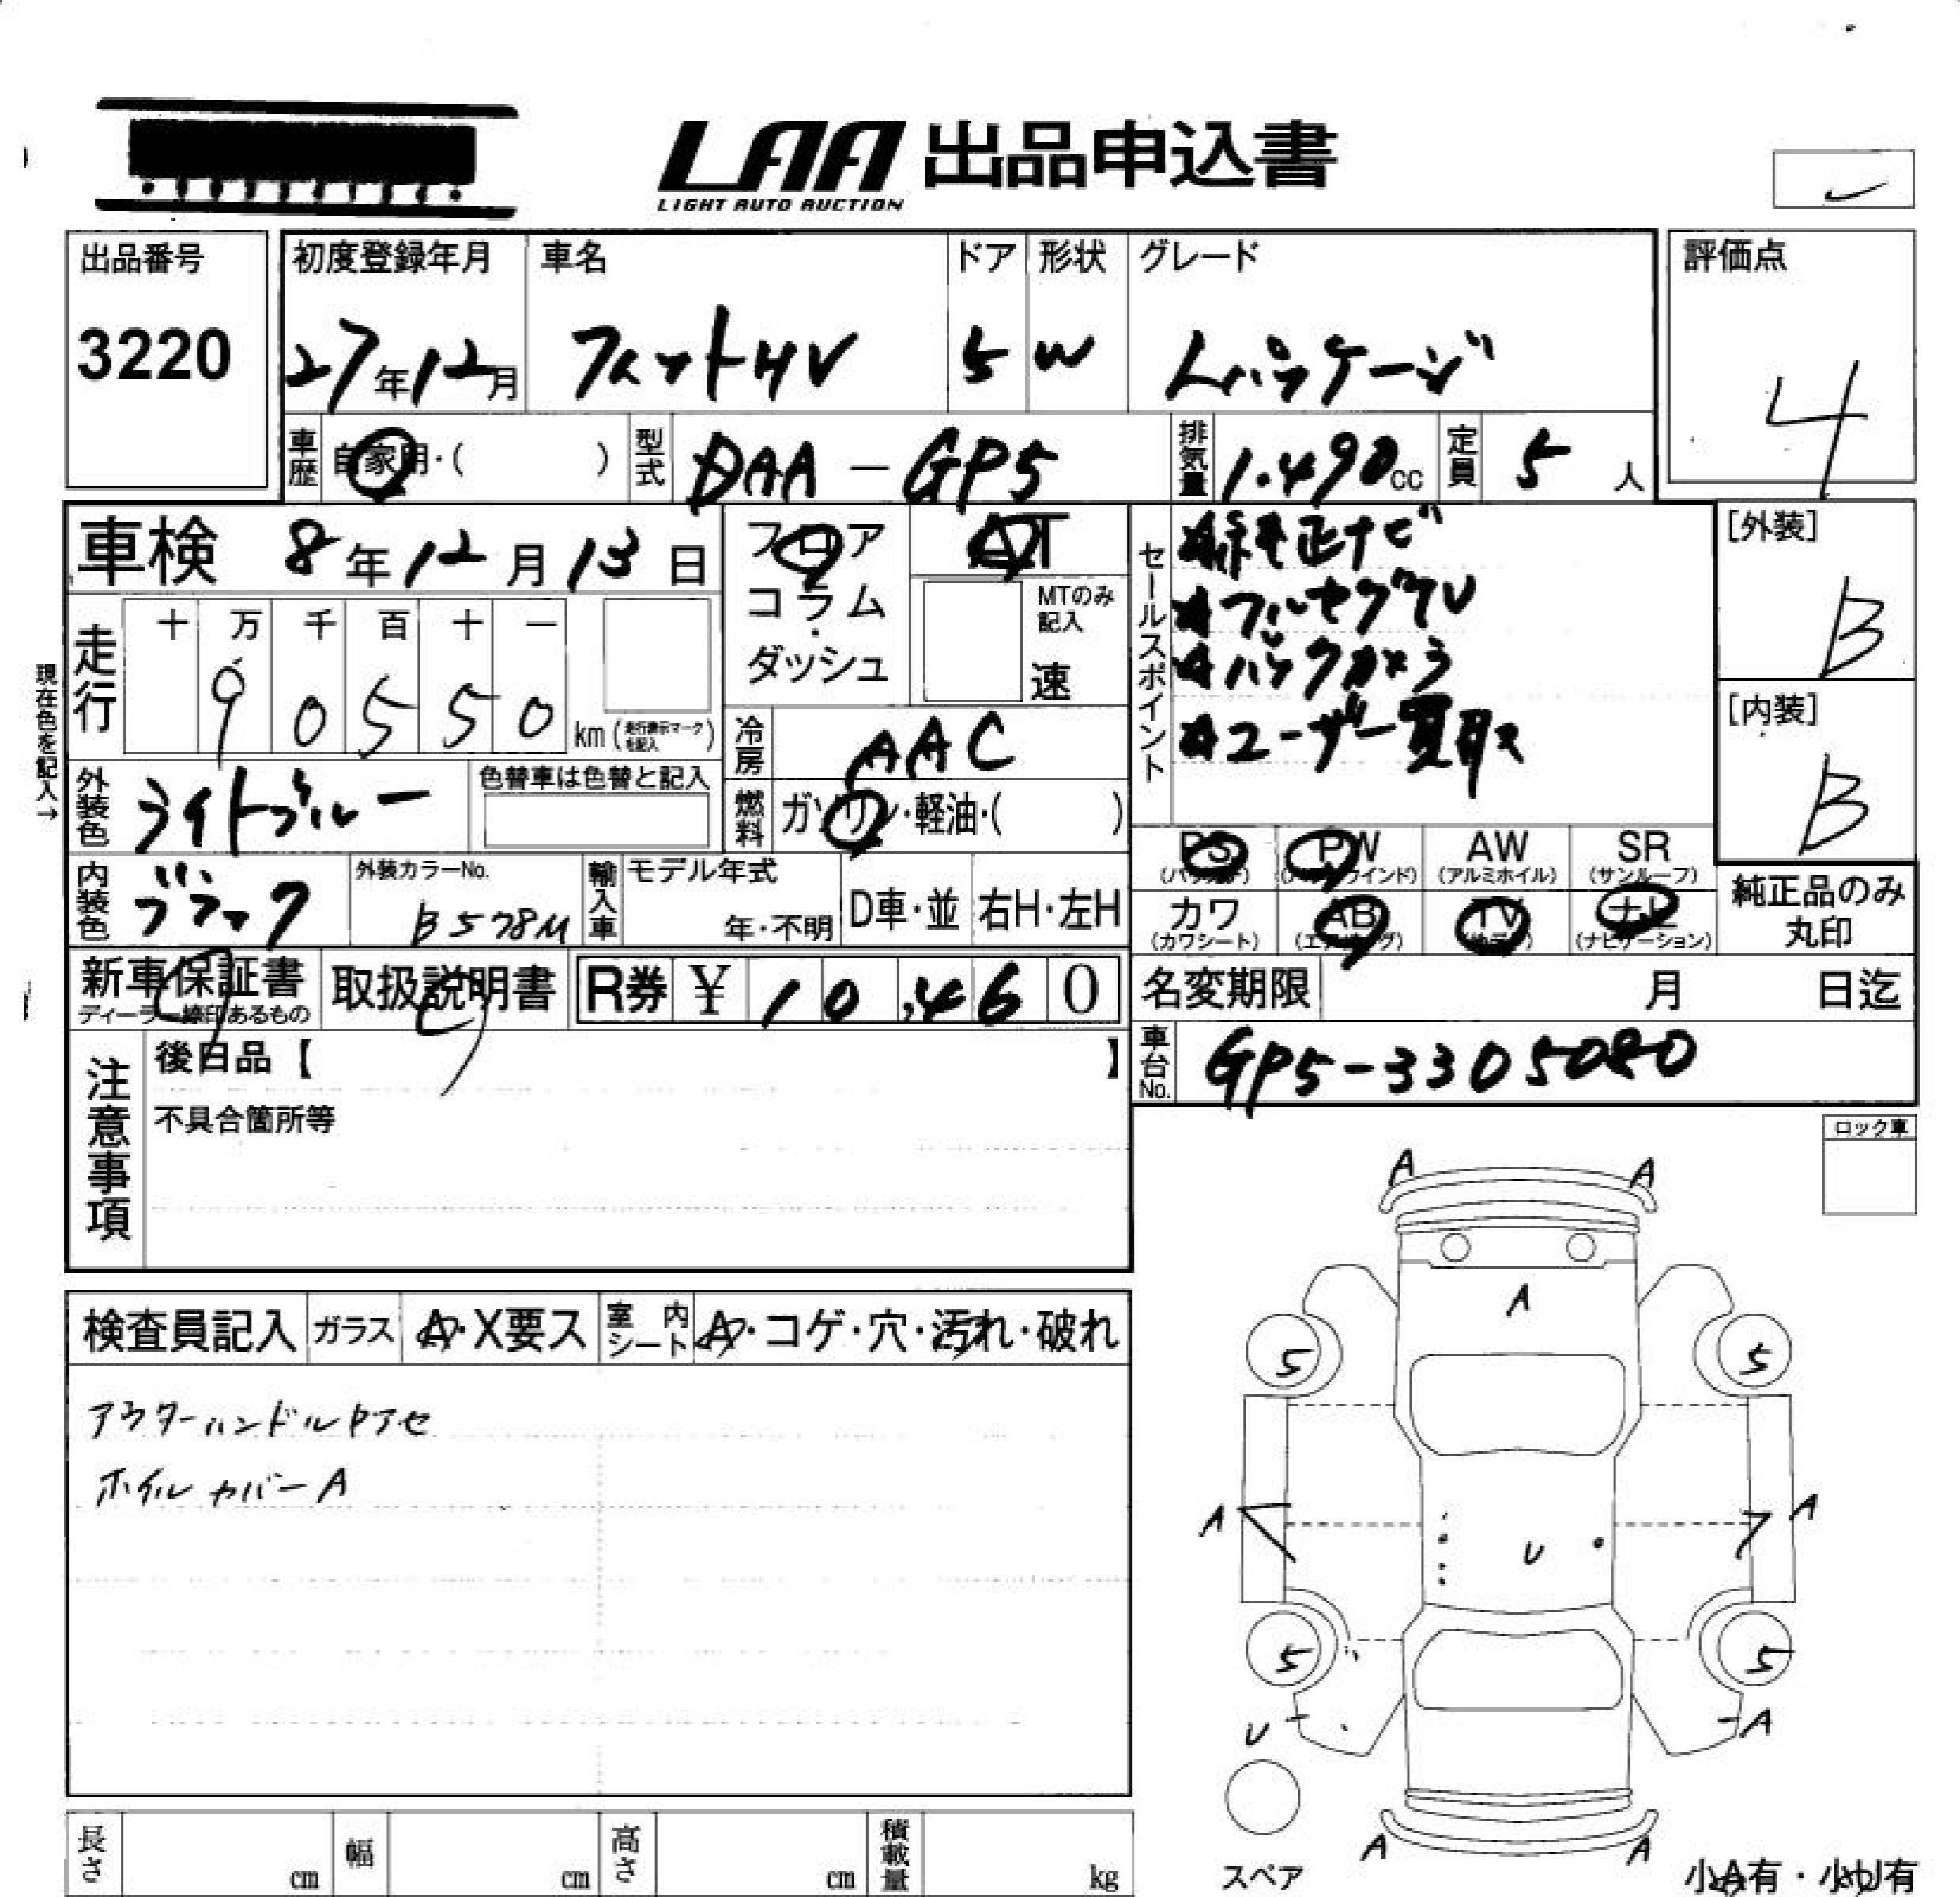 LAA 出品申込書
LIGHT AUTO AUCTION
出品番号
3220
初度登録年月 車名 ドア 形状 グレード
27年12月 フィットHV 5 W Lパッケージ
評価点
4
車歴 自家用・( ) 型式 DAA-GP5 排気量 1.490cc 定員 5 人
車検 8年12月13日
フロア
コラム
・
ダッシュ
AT
MTのみ
記入
速
セールスポイント
☆純正ナビ
☆フルセグTV
☆バックカメラ
☆ユーザー買取ス
[外装]
B
[内装]
B
現在色を記入→
走行
十 万 千 百 十 一
9 0 5 5 0
km(走行表示マークを記入)
冷房 AAC
外装色 ライトブルー
色替車は色替と記入
燃料 ガソリン・軽油・( )
PS PW AW SR
(パワステ) (パワーウインド) (アルミホイル) (サンルーフ)
カワ AB TV ナビ
(カワシート) (エアバッグ) (ナビゲーション)
純正品のみ
丸印
内装色 ブラック
外装カラーNo.
B578M
輸入車 モデル年式
年・不明
D車・並 右H・左H
新車保証書
ディーラー線印あるもの
取扱説明書
R券 ¥ 10,460
名変期限 月 日迄
車台No. GP5-3305080
注意事項
後日品【 】
不具合箇所等
ロック車
検査員記入 ガラス A・X要ス 室内シート A・コゲ・穴・汚れ・破れ
アウターハンドルアセ
ホイルカバーA
A A
A
5 5
A A
U
5 5
U A
A A
スペア
小A有・小U有
長さ cm 幅 cm 高さ cm 積載量 kg